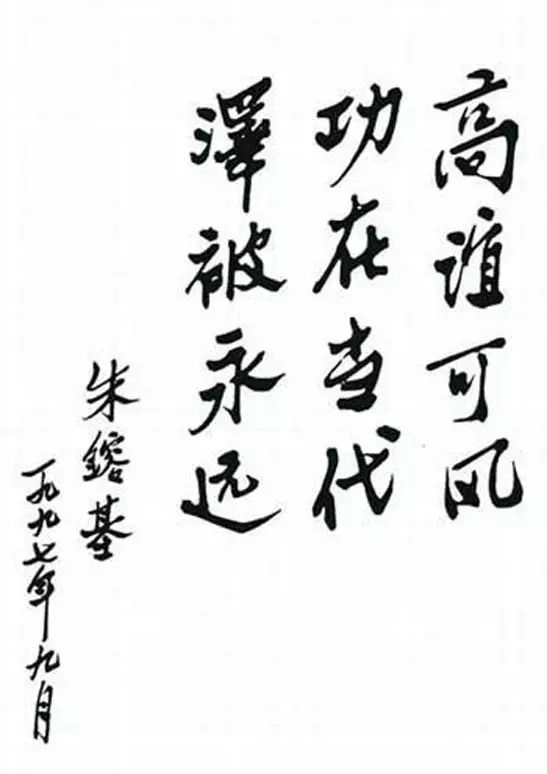 高谊可风
功在当代
澤被永远
朱鎔基
一九九七年九月